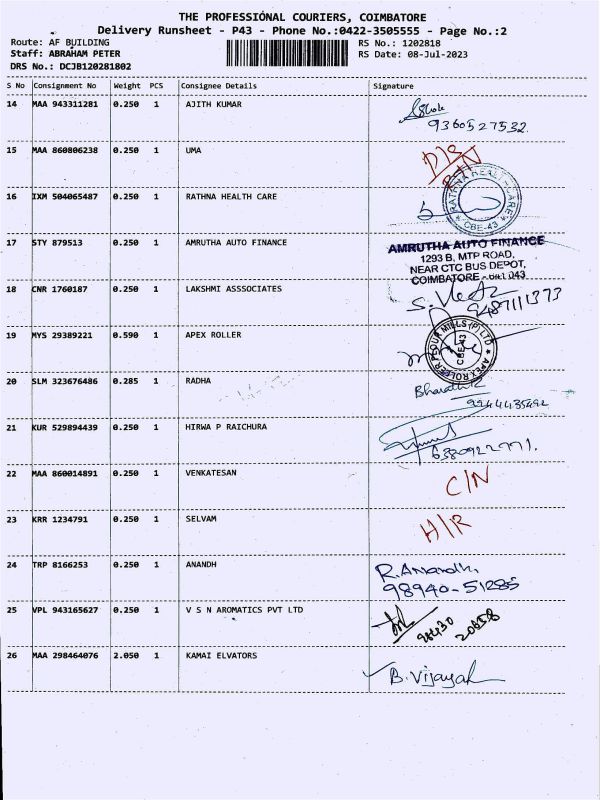 THE PROFESSIONAL COURIERS, COIMBATORE
Delivery Runsheet - P43 - Phone No.:0422-3505555 - Page No.:2
Route: AF BUILDING RS No.: 1202818
Staff: ABRAHAM PETER RS Date: 08-Jul-2023
DRS No.: DCJB120281802
S No Consignment No Weight PCS Consignee Details Signature
14 MAA 943311281 0.250 1 AJITH KUMAR
9360527532.
15 MAA 860806238 0.250 1 UMA
16 IXM 504065487 0.250 1 RATHNA HEALTH CARE
RATHNA HEALTH CARE
* CBE-43 *
17 STY 879513 0.250 1 AMRUTHA AUTO FINANCE
AMRUTHA AUTO FINANCE
1293 B, MTP ROAD,
NEAR CTC BUS DEPOT,
COIMBATORE - 641 043
18 CNR 1760187 0.250 1 LAKSHMI ASSSOCIATES
9487111373
19 MYS 29389221 0.590 1 APEX ROLLER
APEX ROLLER FLOUR MILLS (P) LTD
CBE-43
20 SLM 323676486 0.285 1 RADHA
9244435492
21 KUR 529894439 0.250 1 HIRWA P RAICHURA
6380922771.
22 MAA 860014891 0.250 1 VENKATESAN C/N
23 KRR 1234791 0.250 1 SELVAM H/R
24 TRP 8166253 0.250 1 ANANDH R. Anandh.
98940-51285
25 VPL 943165627 0.250 1 V S N AROMATICS PVT LTD
98430 20658
26 MAA 298464076 2.050 1 KAMAI ELVATORS B. Vijayak